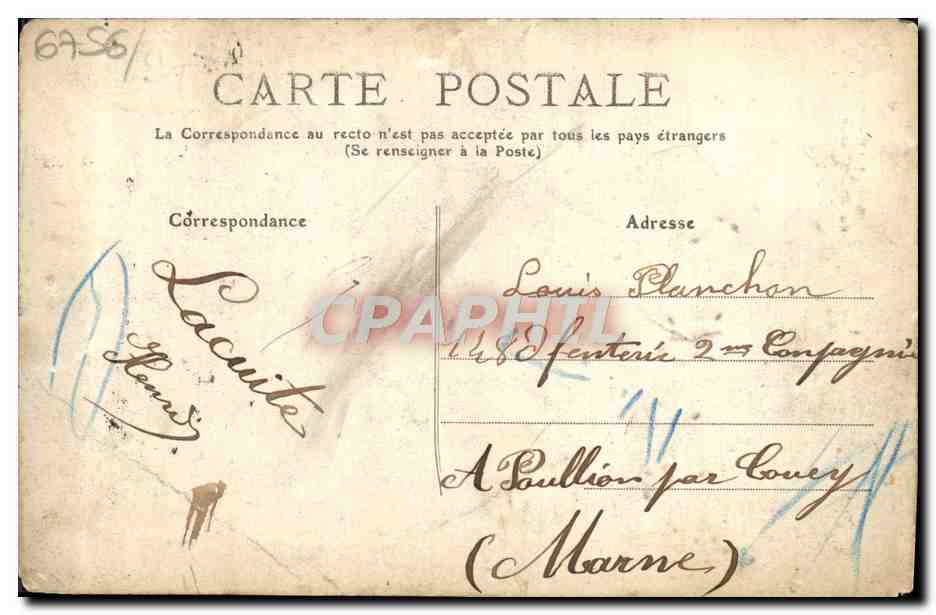 6756/
CARTE POSTALE
La Correspondance au recto n'est pas acceptée par tous les pays étrangers
(Se renseigner à la Poste)
Correspondance
Lacuite
Henri
Adresse
Louis Planchon
148 Ifenterie 2me Conpagnie
A Poullion par Coucy
(Marne)
CPAPHIL